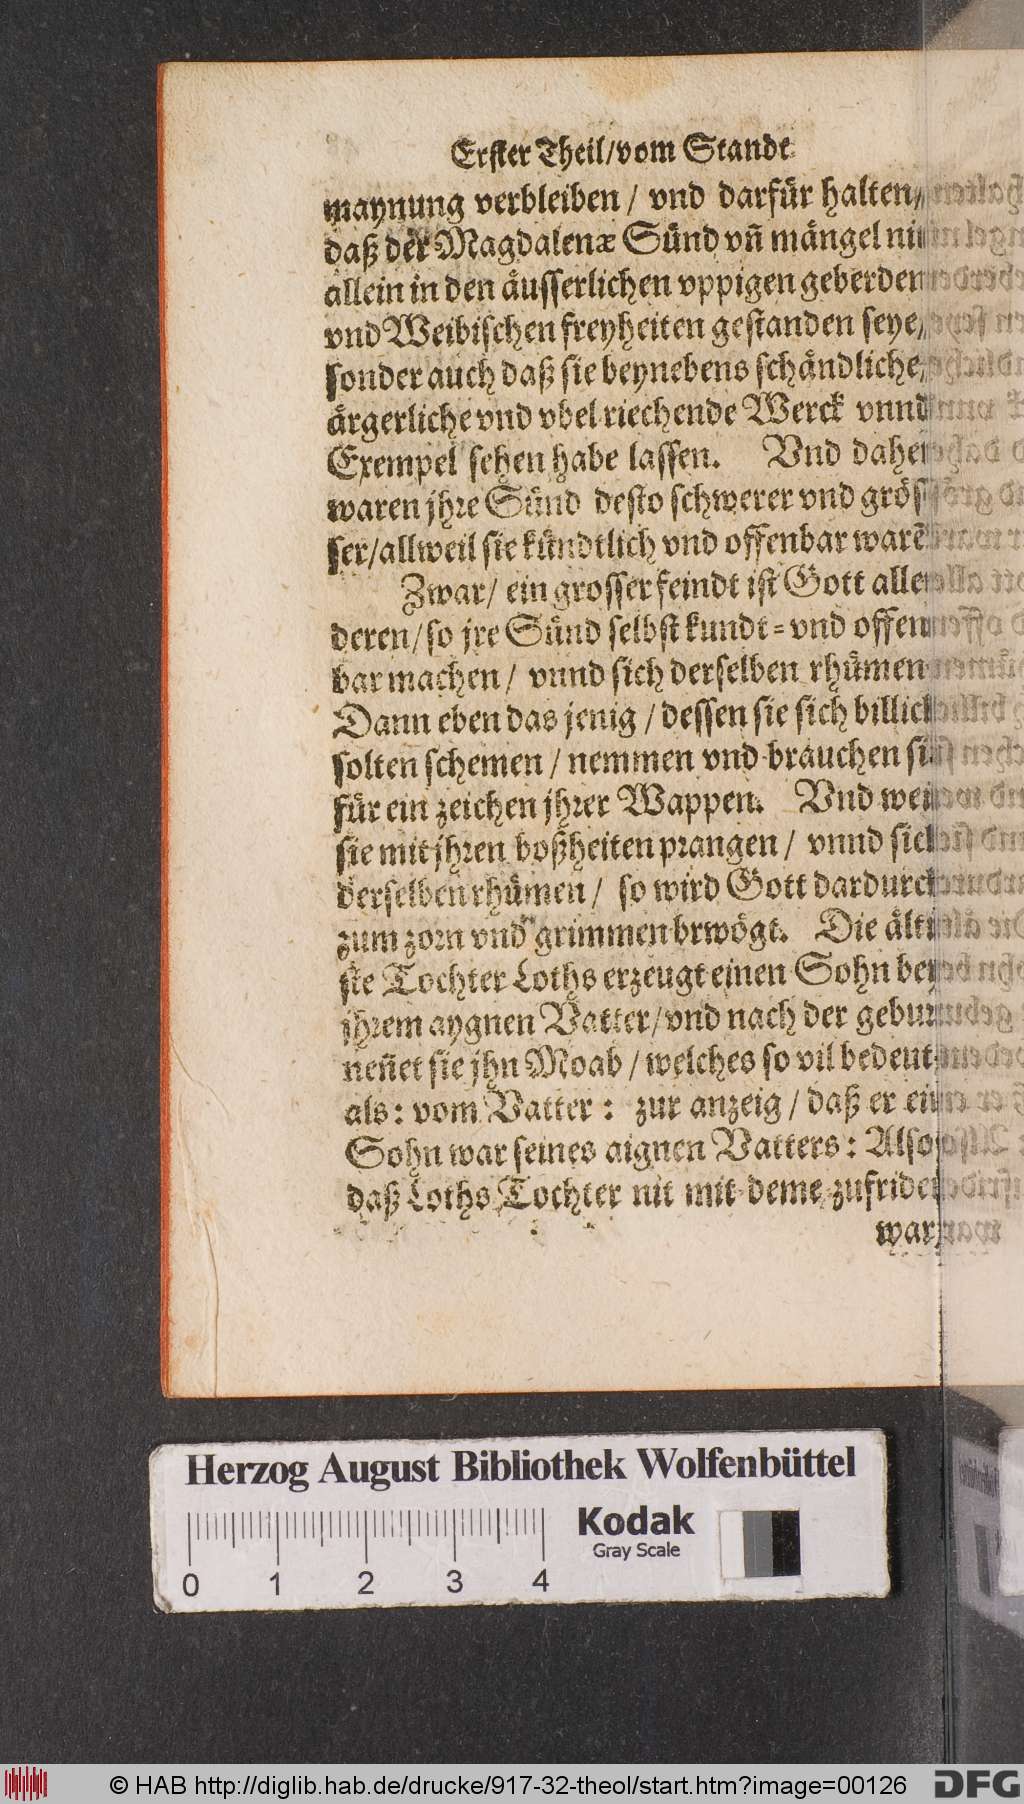 Erster Theil/vom Stande
maynung verbleiben / vnd darfür halten/
daß der Magdalenæ Sünd vñ mängel nit
allein in den äusserlichen vppigen geberden
vnd Weibischen freyheiten gestanden seye/
sonder auch daß sie beynebens schändliche/
ärgerliche vnd vbel riechende Werck vnnd
Exempel sehen habe lassen. Vnd daher
waren jhre Sünd desto schwerer vnd grös
ser/allweil sie kündtlich vnd offenbar warē
Zwar/ ein grosser feindt ist Gott allen
deren/so jre Sünd selbst kundt= vnd offen
bar machen / vnnd sich derselben rhümen
Dann eben das jenig / dessen sie sich billich
solten schemen / nemmen vnd brauchen sie
für ein zeichen jhrer Wappen. Vnd weil
sie mit jhren boßheiten prangen / vnnd sich
derselben rhümen / so wird Gott dardurch
zum zorn vnd grimmen brwögt. Die älti
ste Tochter Loths erzeugt einen Sohn bey
jhrem aygnen Vatter/vnd nach der geburt
neñet sie jhn Moab / welches so vil bedeut
als: vom Vatter: zur anzeig / daß er ein
Sohn war seines aignen Vatters: Also
daß Loths Tochter nit mit deme zufriden
war/
Herzog August Bibliothek Wolfenbüttel
Kodak
Gray Scale
0 1 2 3 4
© HAB http://diglib.hab.de/drucke/917-32-theol/start.htm?image=00126
DFG